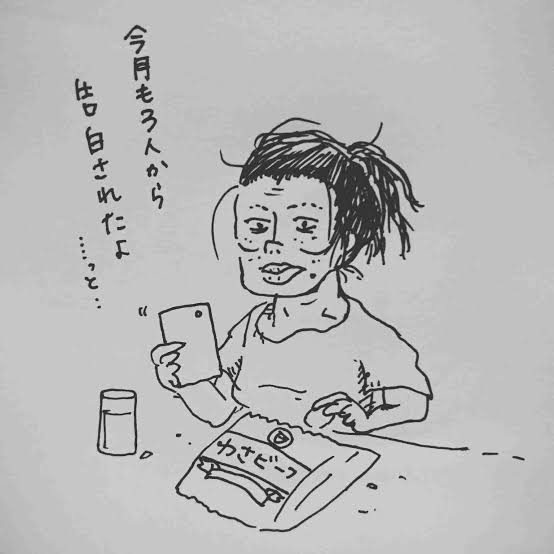 今月も3人から
告白されたよ
……っと…
わさビーフ